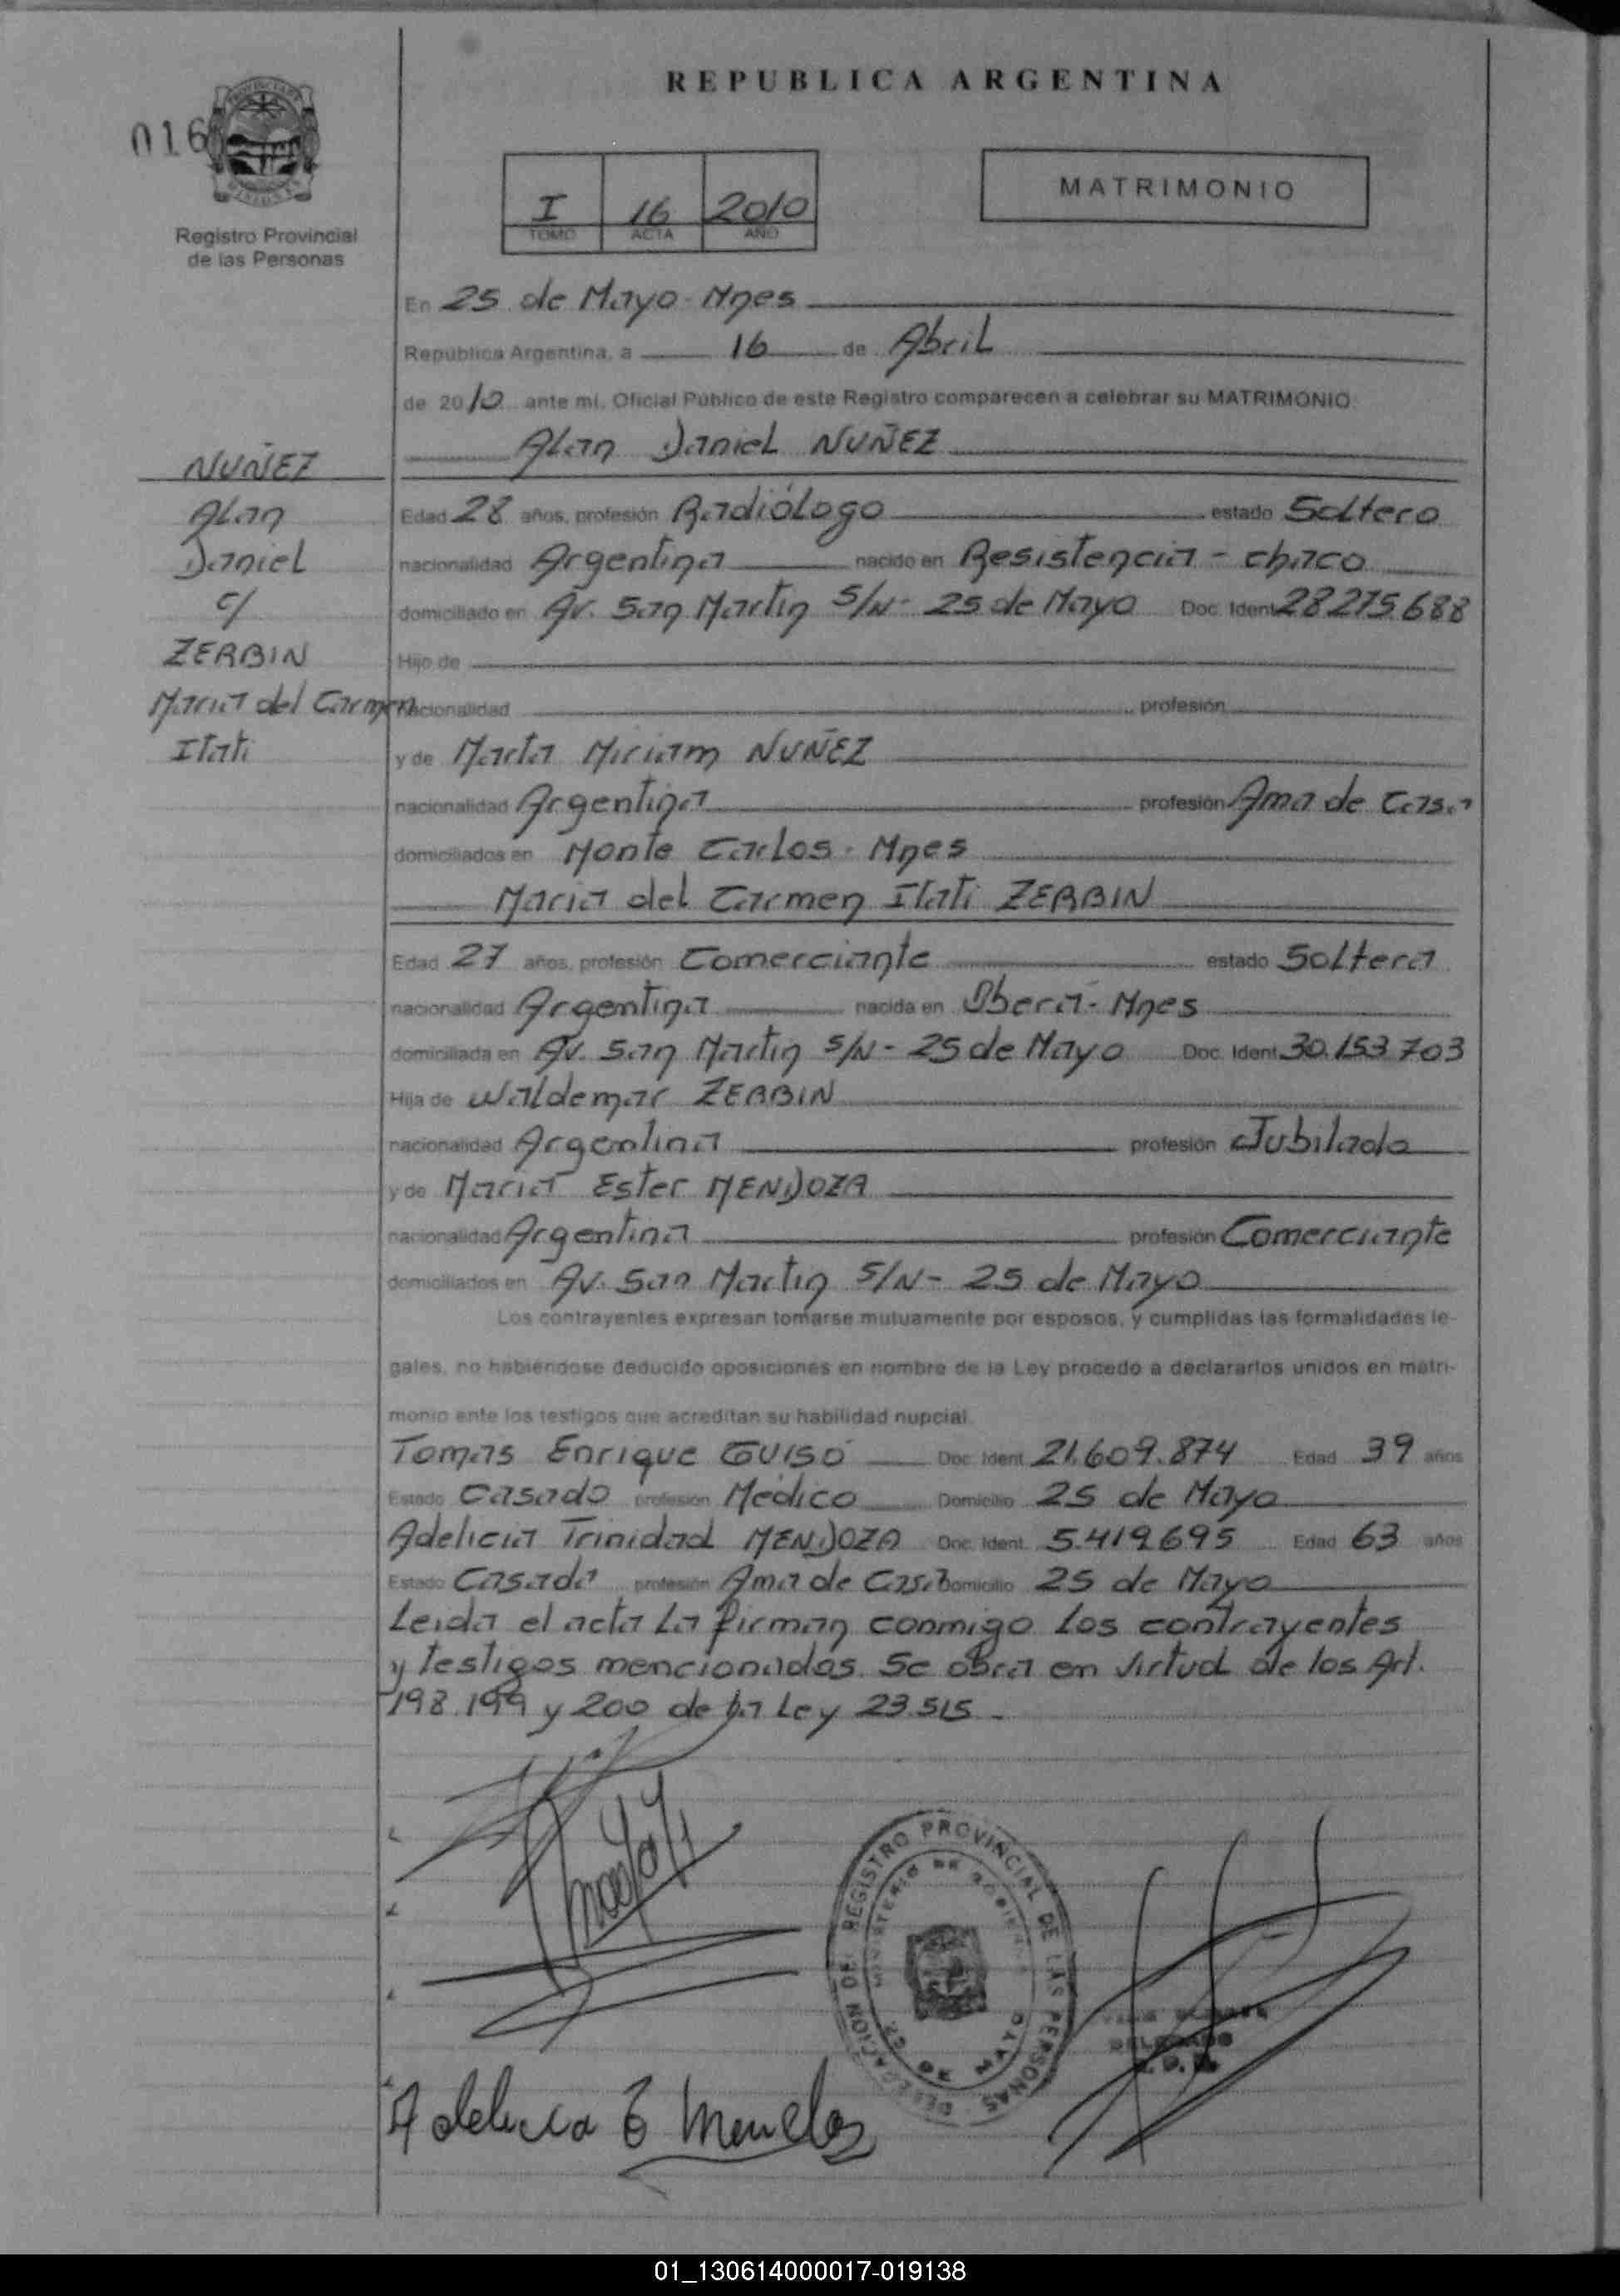 REPUBLICA ARGENTINA
016
Registro Provincial
de las Personas
I 16 2010
TOMO ACTA AÑO
MATRIMONIO
En 25 de Mayo - Mnes
República Argentina, a 16 de Abril
de 2010 ante mi, Oficial Público de este Registro comparecen a celebrar su MATRIMONIO
Alan Daniel NUÑEZ
NUÑEZ
Alan
Daniel
c/
ZERBIN
Maria del Carmen
Itati
Edad 28 años, profesión Radiólogo estado Soltero
nacionalidad Argentina nacido en Resistencia - Chaco
domiciliado en Av. San Martin S/N - 25 de Mayo Doc. Ident 28.275.688
Hijo de
nacionalidad profesión
y de Marta Miriam NUÑEZ
nacionalidad Argentina profesión Ama de Casa
domiciliados en Monte Carlos - Mnes
Maria del Carmen Itati ZERBIN
Edad 27 años, profesión Comerciante estado Soltera
nacionalidad Argentina nacida en Oberá - Mnes
domiciliada en Av. San Martin S/N - 25 de Mayo Doc. Ident 30.153.703
Hija de Waldemar ZERBIN
nacionalidad Argentina profesión Jubilado
y de Maria Ester MENDOZA
nacionalidad Argentina profesión Comerciante
domiciliados en Av. San Martin S/N - 25 de Mayo
Los contrayentes expresan tomarse mutuamente por esposos, y cumplidas las formalidades le-
gales, no habiéndose deducido oposiciones en nombre de la Ley procedo a declararlos unidos en matri-
monio ante los testigos que acreditan su habilidad nupcial.
Tomas Enrique GUISÓ Doc. Ident. 21.609.874 Edad 39 años
Estado Casado profesión Medico Domicilio 25 de Mayo
Adelicia Trinidad MENDOZA Doc. Ident. 5.419.695 Edad 63 años
Estado Casada profesión Ama de Casa Domicilio 25 de Mayo
Leida el acta la firman conmigo los contrayentes
y testigos mencionados. Se obra en virtud de los Art.
198.199 y 200 de la Ley 23.515 -
DELEGACION DEL REGISTRO PROVINCIAL DE LAS PERSONAS
MINISTERIO DE GOBIERNO
25 DE MAYO
DELEGADO
01_130614000017-019138